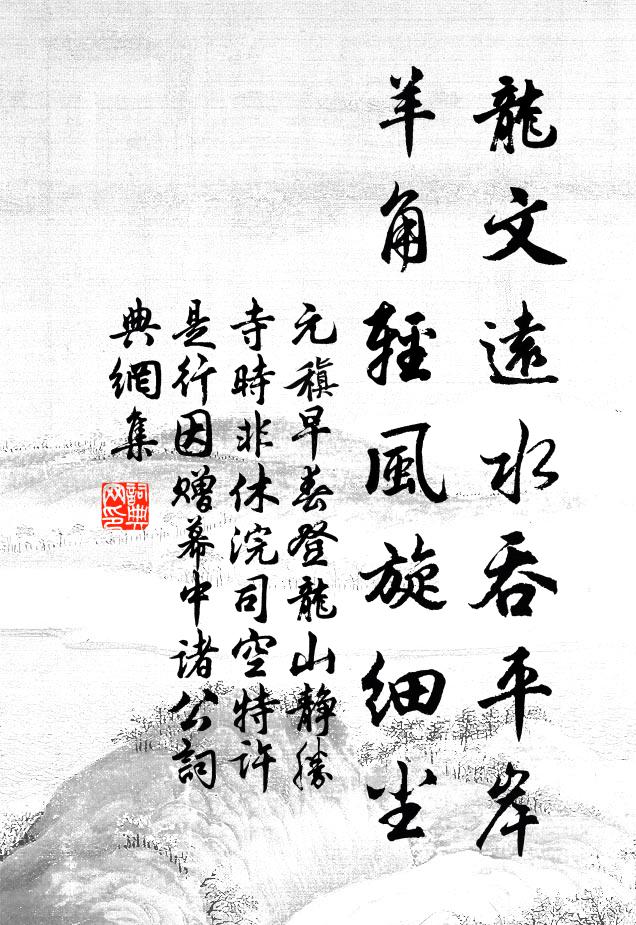 龍文遠水吞平岸
羊角輕風旋細尘
元稹早春登龍山静勝
寺時非休浣司空特許
是行因赠幕中诸公詞
典網集
詞典
网印